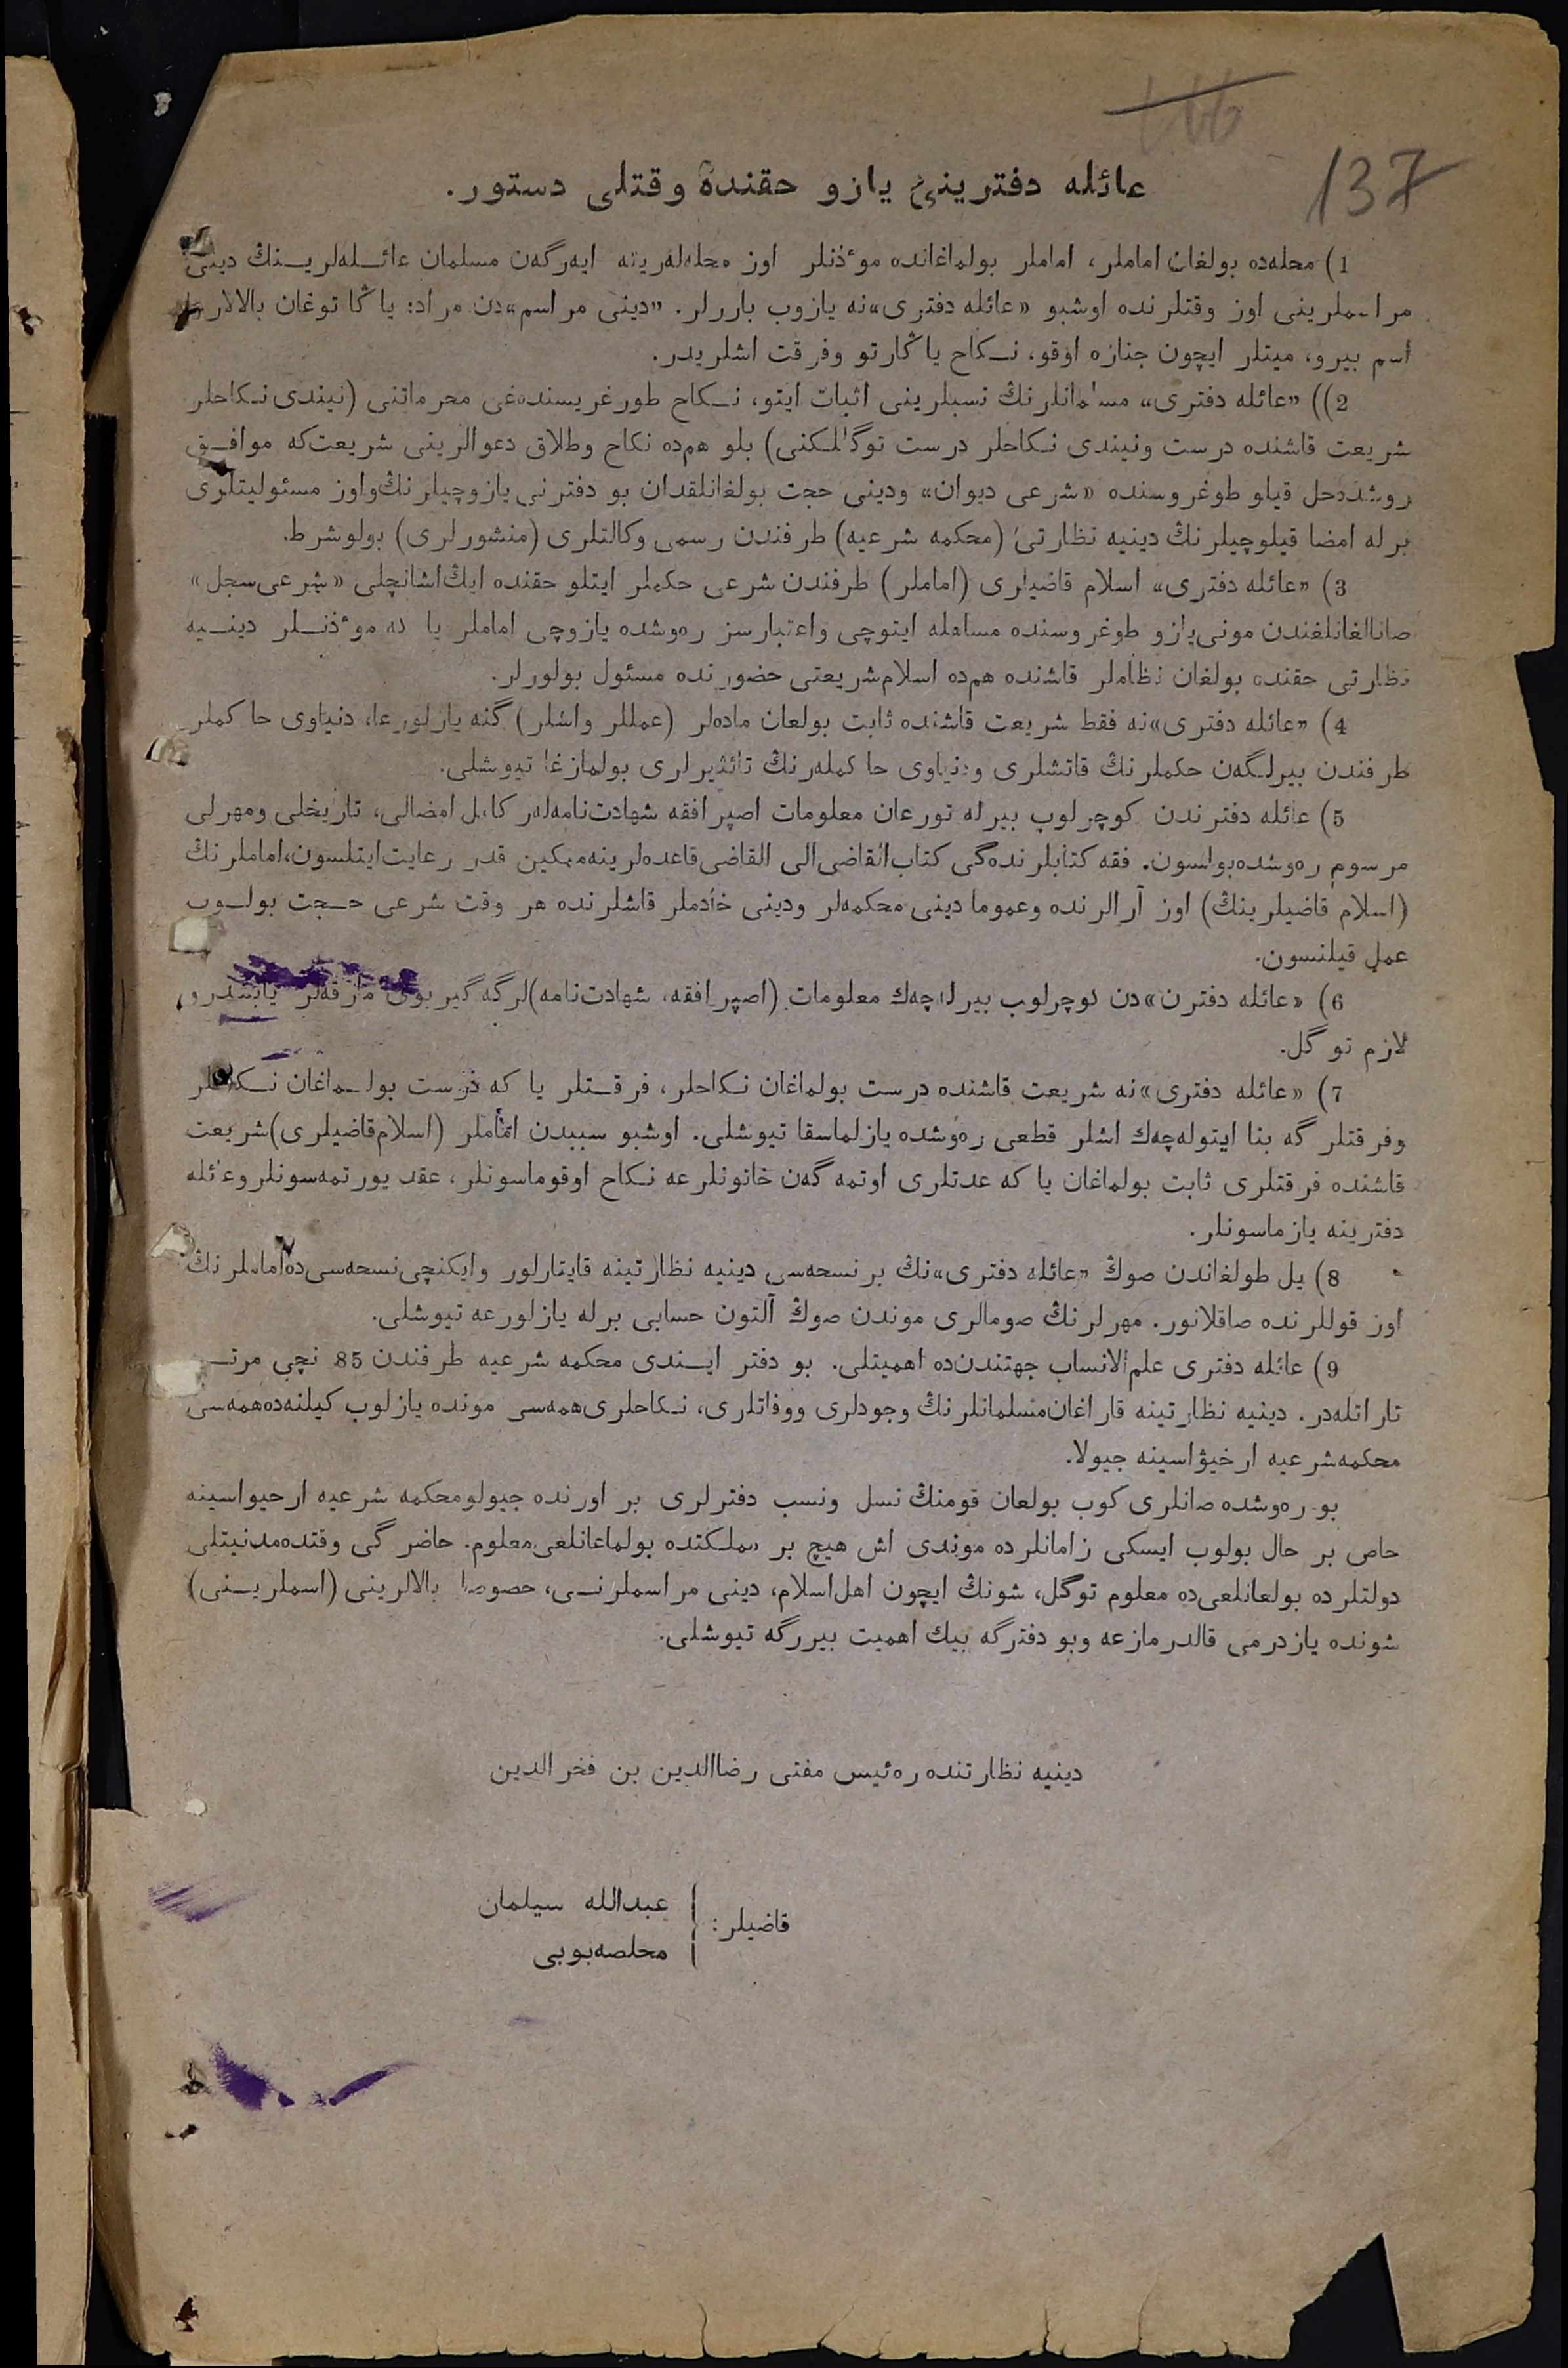 137
عائله دفترینیٔ یازو حقندهٔ وقتلی دستور.
1) محله‌ده بولغان اماملر، اماملر بولماغانده موٴذنلر اوز محله‌لرینه ایه‌رگه‌ن مسلمان عائـله‌لریـنڭ دینی
مراسملرینی اوز وقتلرنده اوشبو «عائله دفتری»نه یازوب باررلر. «دینی مراسم»دن مراد: یاڭا توغان بالالارغا
أسم بیرو، میتلر ایچون جنازه اوقو، نـکاح یاڭارتو وفرقت اشلریدر.
2)) «عائله دفتری» مسلمانلرنڭ نسبلرینی اثبات ایتو، نـکاح طورغریسنده‌غی محرماتنی (نیندی نـکاحلر
شریعت قاشنده درست ونیندی نـکاحلر درست توگللـکنی) بلو هم‌ده نکاح وطلاق دعوالرینی شریعت‌که موافـق
روشده‌حل قیلو طوغروسنده «شرعی دیوان» ودینی حجت بولغانلقدان بو دفترنی یازوچیلرنڭ‌واوز مسئولیتلری
برله امضا قیلوچیلرنڭ دینیه نظارتی (محکمه شرعیه) طرفندن رسمی وکالتلری (منشورلری) بولوشرط.
3) «عائله دفتری» اسلام قاضیلری (اماملر) طرفندن شرعی حکملر ایتلو حقنده ایڭ‌اشانچلی «شرعی‌سجل»
صانالغانلغندن مونی‌یازو طوغروسنده مساهله ایتوچی واعتبارسز ره‌وشده یازوچی اماملر یا که موٴذنـلر دینـیه
نظارتی حقنده بولغان نظاملر قاشنده هم‌ده اسلام‌شریعتی حضورنده مسئول بولورلر.
4) «عائله دفتری»نه فقط شریعت قاشنده ثابت بولعان ماده‌لر (عمللر واشلر) گنه یازلورعا، دنیاوی حاکملر
طرفندن بیرلـگه‌ن حکملرنڭ قاتشلری ودنیاوی حاکمله‌رنڭ تائثیرلری بولمازغا تیوشلی.
5) عائله دفترندن کوچرلوب بیرله تورعان معلومات اصپرافقه شهادت‌نامه‌لەر کامل امضالی، تاریخلی ومهرلی
مرسوم ره‌وشده‌بولسون. فقه کتابلرنده‌گی کتاب‌القاضی‌الی القاضی‌قاعده‌لرینه‌ممکین قدر رعایت‌ایتلسون،اماملرنڭ
(اسلام قاضیلرینڭ) اوز آرالرنده وعموما دینی محکمه‌لر ودینی خأدملر قاشلرنده هر وقت شرعی حـجت بولـوب
عمل قیلنسون.
6) «عائله دفترن»دن کوچرلوب بیرله‌چه‌ك معلومات (اصپرافقه، شهادت‌نامه)لرگه گیربوی مارقه‌لر یابشدرو
لازم توگل.
7) «عائله دفتری»نه شریعت قاشنده درست بولماغان نـکاحلر، فرقـتلر یا که درست بولـماغان نـکاحلر
وفرقتلرگه بنا ایتوله‌چه‌ك اشلر قطعی ره‌وشده یازلماسقا تیوشلی. اوشبو سببدن اماملر (اسلام‌قاضیلری)شریعت
قاشنده فرقتلری ثابت بولماغان یا که عدتلری اوتمه‌گه‌ن خانونلرعه نـکاح اوقوماسونلر، عقد یورتمه‌سونلروعائله
دفترینه یازماسونلر.
8) یل طولغاندن صوڭ «عائله دفتری»نڭ برنسحه‌سی دینیه نظارتینه قایتارلور وایکنچی‌نسحه‌سی‌ده‌اماملرنڭ
اوز قوللرنده صاقلانور. مهرلرنڭ صومالری موندن صوڭ آلتون حسابی برله یازلورعه تیوشلی.
9) عائله دفتری علم‌الانساب جهتندن‌ده اهمیتلی. بو دفتر ایـندی محکمه شرعیه طرفندن 85 نچی مرتـ
تاراتله‌در. دینیه نظارتینه قاراغان‌مسلمانلرنڭ وجودلری ووفاتلری، نـکاحلری‌همه‌سی مونده یازلوب کیلنه‌ده‌همه‌سی
محکمه‌شرعیه ارخیۋاسینه جیولا.
بو ره‌وشده صانلری کوب بولعان قومنڭ نسل ونسب دفترلری بر اورنده جیولومحکمه شرعیه ارحیواسینه
حاص بر حال بولوب ایسکی زامانلرده موندی اش هیچ بر مملـکتده بولماعانلعی‌معلوم. حاضرگی وقتده‌مدنیتلی
دولتلرده بولعانلعی‌ده معلوم توگل، شونڭ ایچون اهل‌اسلام، دینی مراسملرنـی، حصوصا بالالرینی (اسملریـنی)
شونده یازدرمی قالدرمازعه وبو دفترگه بیك اهمیت بیررگه تیوشلی.
دینیه نظارتنده ره‌ئیس مفتی رضاالدین بن فخرالدین
قاضیلر: عبدالله سیلمان
محلصه‌بوبی